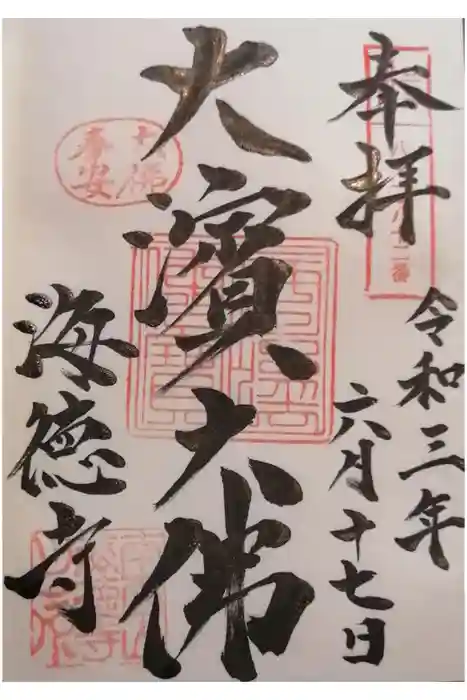 奉拝
令和三年
六月十七日
大濱大佛
海徳寺
大佛
奉安